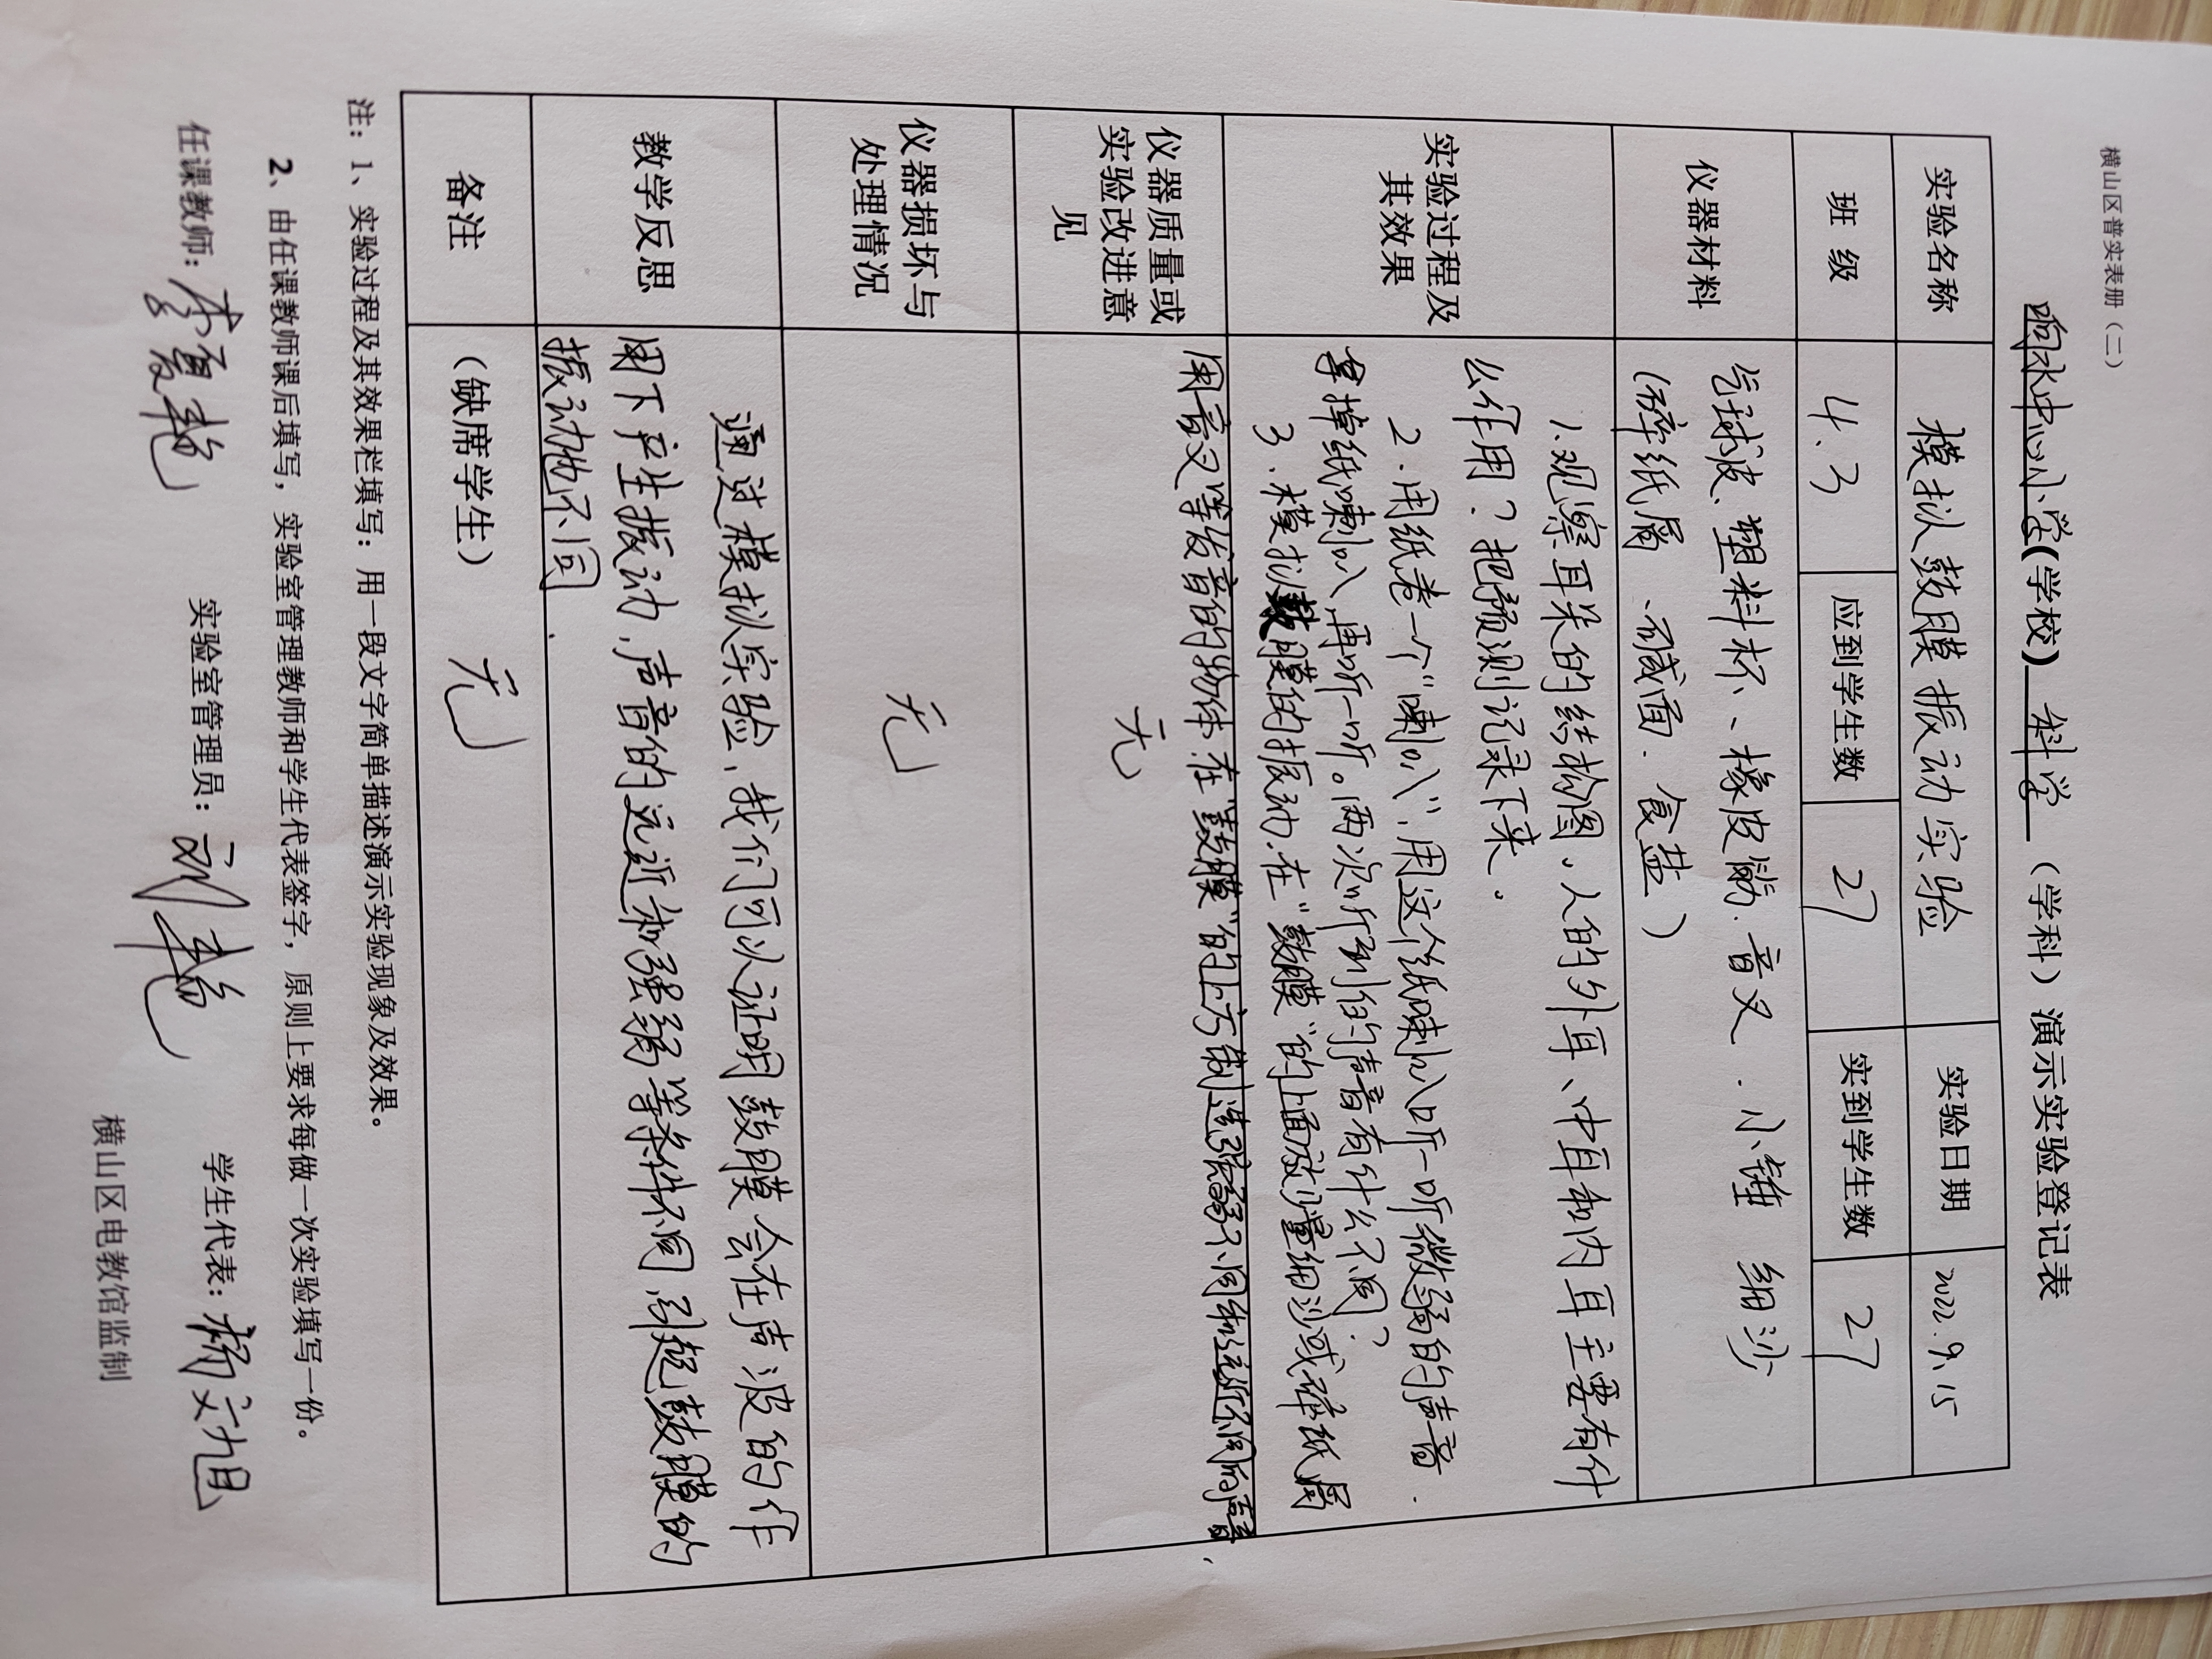 横山区普实表册（二）
响水中心小学(学校) 科学 （学科）演示实验登记表
实验名称 模拟鼓膜振动实验 实验日期 2022.9.15
班 级 4.3 应到学生数 27 实到学生数 27
仪器材料 气球皮、塑料杯、橡皮筋、音叉、小锤 细沙
(碎纸屑、碱面、食盐)
实验过程及
其效果
1.观察耳朵的结构图，人的外耳、中耳和内耳主要有什
么作用？把预测记录下来。
2.用纸卷一个“喇叭”，用这个纸喇叭听一听微弱的声音.
拿掉纸喇叭，再听一听。两次听到的声音有什么不同？
3、模拟鼓膜的振动，在“鼓膜”的上面放少量细沙或碎纸屑
用音叉等发音的物体在“鼓膜”的上方制造强弱不同和远近不同的声音、
仪器质量或
实验改进意
见
无
仪器损坏与
处理情况
无
教学反思
通过模拟实验，我们可以证明鼓膜会在声波的作
用下产生振动，声音的远近和强弱等条件不同，引起鼓膜的
振动也不同.
备注 （缺席学生） 无
注：1、实验过程及其效果栏填写：用一段文字简单描述演示实验现象及效果。
2、由任课教师课后填写，实验室管理教师和学生代表签字，原则上要求每做一次实验填写一份。
任课教师： 实验室管理员： 学生代表：
横山区电教馆监制